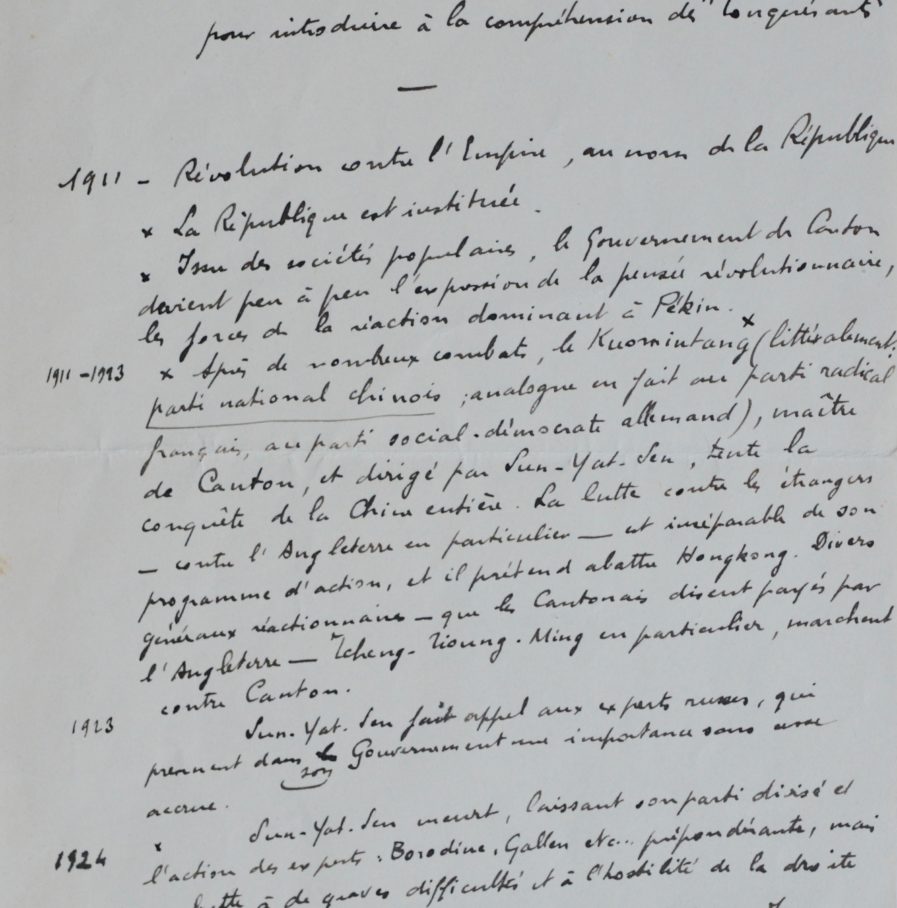 pour introduire à la compréhension des "Conquérants"
1911 - Révolution contre l'Empire, au nom de la République
x La République est instituée.
x Issu des sociétés populaires, le Gouvernement de Canton
devient peu à peu l'expression de la pensée révolutionnaire,
les forces de la réaction dominant à Pékin.
1911-1923 x Après de nombreux combats, le Kuomintang x (littéralement:
parti national chinois ; analogue en fait au parti radical
français, au parti social-démocrate allemand), maître
de Canton, et dirigé par Sun-Yat-Sen, tente la
conquête de la Chine entière. La lutte contre les étrangers
— contre l'Angleterre en particulier — est inséparable de son
programme d'action, et il prétend abattre Hongkong. Divers
généraux réactionnaires — que les Cantonais disent payés par
l'Angleterre — Tcheng-Tioung-Ming en particulier, marchent
contre Canton.
1923 Sun-Yat-Sen fait appel aux experts russes, qui
prennent dans le son Gouvernement une importance sans cesse
accrue.
1924 x Sun-Yat-Sen meurt, laissant son parti divisé et
l'action des experts : Borodine, Gallen etc... prépondérante, mais
en butte à de graves difficultés et à l'hostilité de la droite